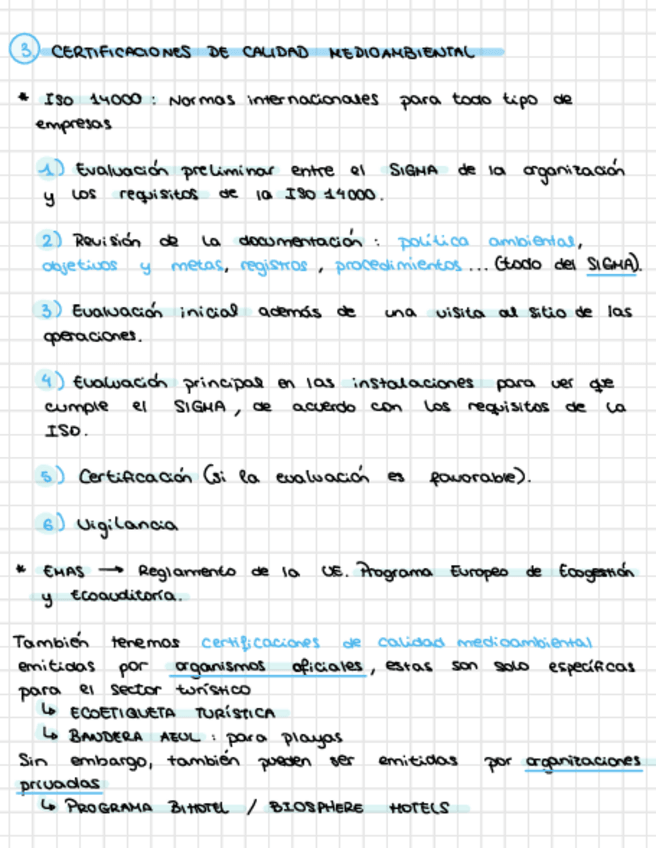 3 CERTIFICACIONES DE CALIDAD MEDIOAMBIENTAL
* ISO 14000 : Normas internacionales para todo tipo de
empresas
1) Evaluación preliminar entre el SIGMA de la organización
y los requisitos de la ISO 14000.
2) Revisión de la documentación : política ambiental,
objetivos y metas, registros, procedimientos ... (todo del SIGMA).
3) Evaluación inicial además de una visita al sitio de las
operaciones.
4) Evaluación principal en las instalaciones para ver que
cumple el SIGMA, de acuerdo con los requisitos de la
ISO.
5) Certificación (si la evaluación es favorable).
6) Vigilancia
* EMAS → Reglamento de la UE. Programa Europeo de Ecogestión
y Ecoauditoría.
También tenemos certificaciones de calidad medioambiental
emitidas por organismos oficiales, estas son solo específicas
para el sector turístico
↳ ECOETIQUETA TURÍSTICA
↳ BANDERA AZUL : para playas
Sin embargo, también pueden ser emitidas por organizaciones
privadas
↳ PROGRAMA BIHOTEL / BIOSPHERE HOTELS